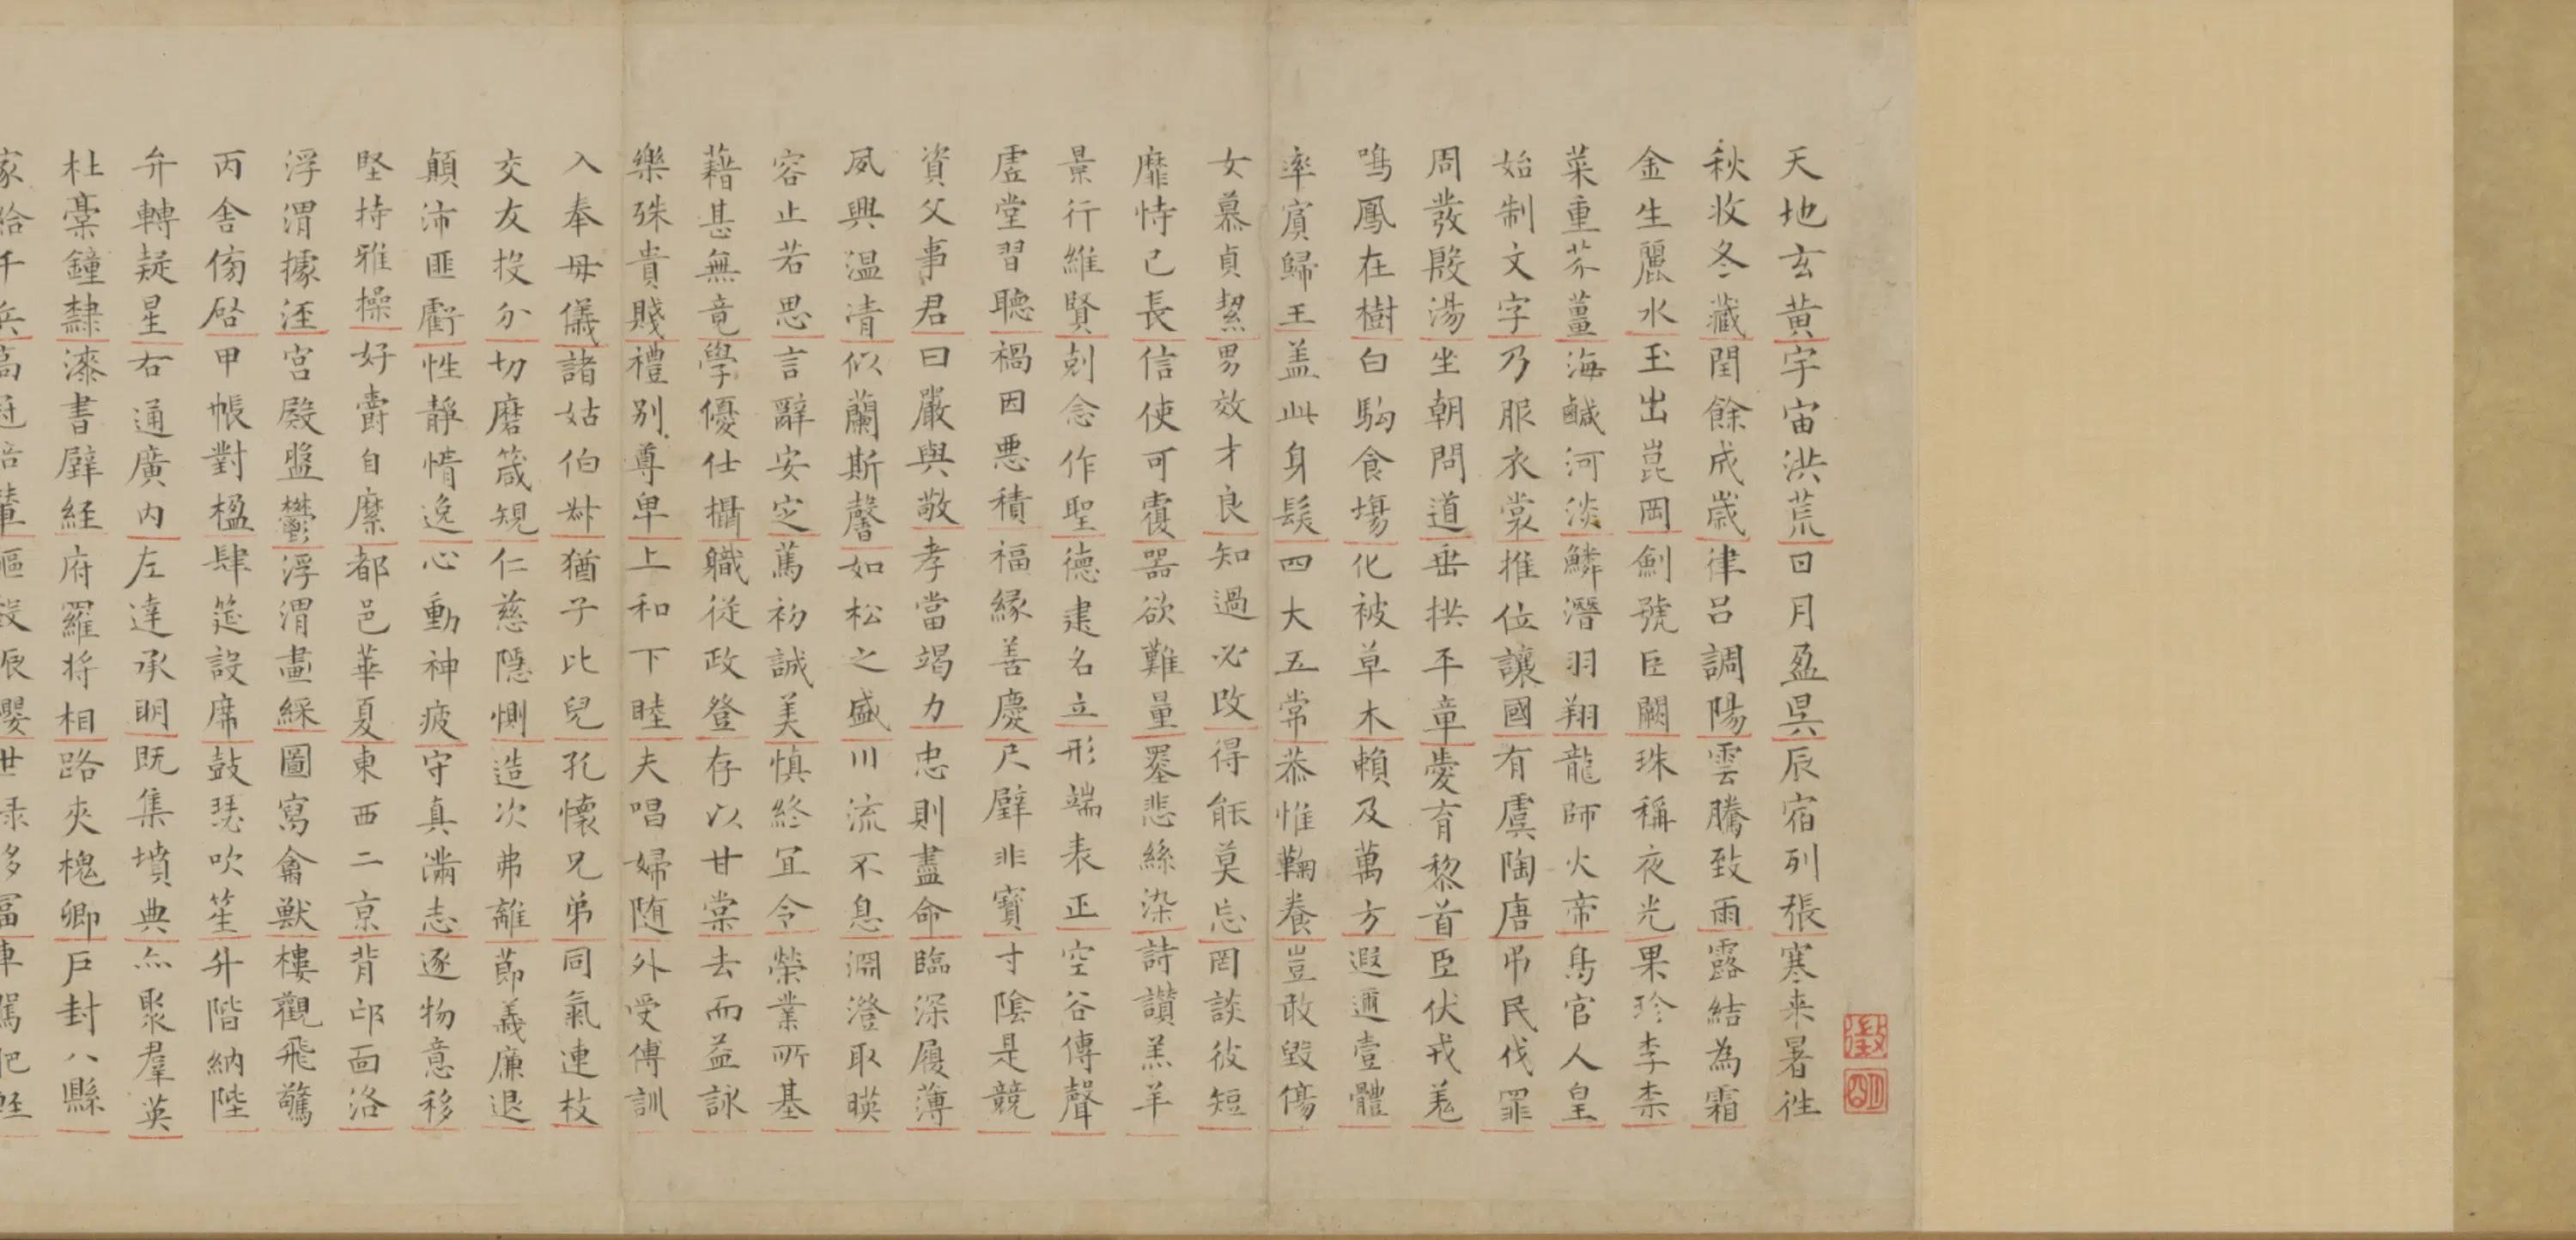 天地玄黄宇宙洪荒日月盈昃辰宿列張寒来暑往
秋收冬藏閏餘成歲律吕調陽雲騰致雨露結為霜
金生麗水玉出崑岡劍號巨闕珠稱夜光果珍李柰
菜重芥薑海鹹河淡鱗潛羽翔龍師火帝鳥官人皇
始制文字乃服衣裳推位讓國有虞陶唐弔民伐罪
周發殷湯坐朝問道垂拱平章愛育黎首臣伏戎羌
鳴鳳在樹白駒食場化被草木賴及萬方遐邇壹體
率賓歸王盖此身髮四大五常恭惟鞠養豈敢毀傷
女慕貞絜男效才良知過必改得能莫忘罔談彼短
靡恃己長信使可覆器欲難量墨悲絲染詩讃羔羊
景行維賢剋念作聖德建名立形端表正空谷傳聲
虛堂習聽禍因惡積福緣善慶尺璧非寶寸陰是競
資父事君曰嚴與敬孝當竭力忠則盡命臨深履薄
夙興温凊似蘭斯馨如松之盛川流不息淵澄取暎
容止若思言辭安定篤初誠美慎終宜令榮業所基
藉甚無竟學優仕攝職從政登存以甘棠去而益詠
樂殊貴賤禮别尊卑上和下睦夫唱婦随外受傅訓
入奉母儀諸姑伯叔猶子比兒孔懷兄弟同氣連枝
交友投分切磨箴規仁慈隱惻造次弗離節義廉退
顛沛匪虧性靜情逸心動神疲守真滿志逐物意移
堅持雅操好爵自縻都邑華夏東西二京背邙面洛
浮渭據涇宮殿盤鬱浮渭畫綵圖寫禽獸樓觀飛驚
丙舍傍啟甲帳對楹肆筵設席鼓瑟吹笙升階納陛
弁轉疑星右通廣内左達承明既集墳典亦聚羣英
杜稾鐘隸漆書壁經府羅将相路夾槐卿户封八縣
家給千兵高冠陪輦驅轂振纓世禄侈富車駕肥輕
徵明